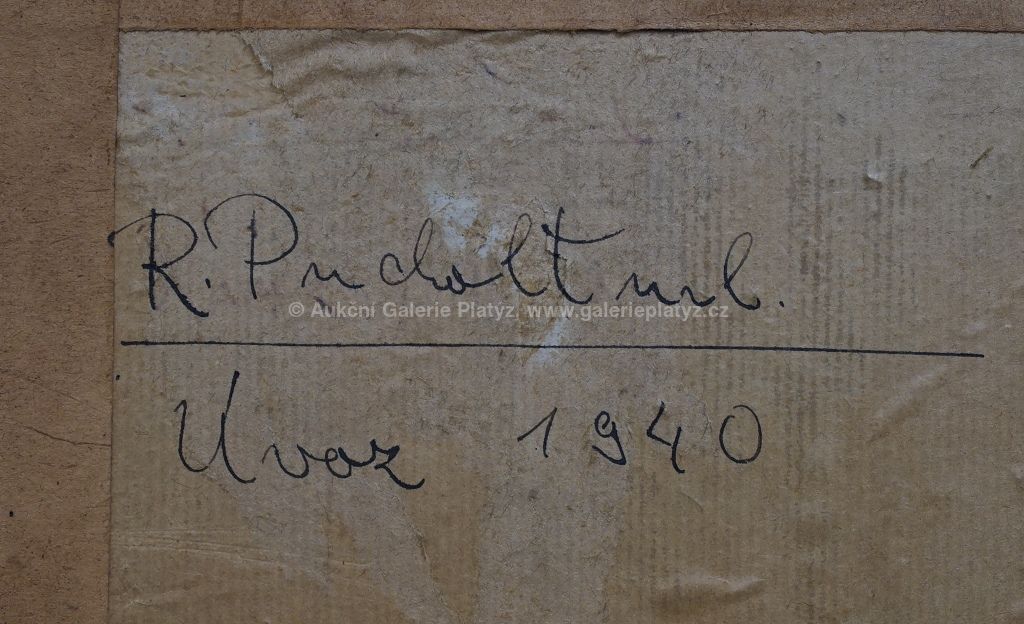 R. Pucholt ml.
© Aukční Galerie Platyz, www.galerieplatyz.cz
Úvoz 1940